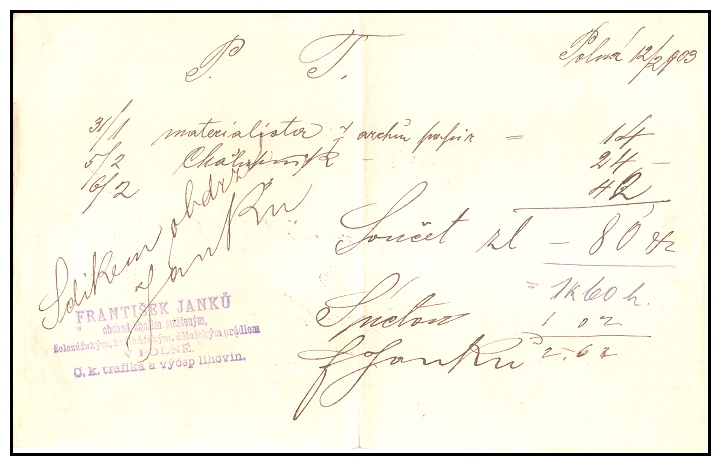 P. T. Polná 12/2 903
31/1 materialista 7 archů papír = 14
5/2 - 24 -
6/2 42
Součet zl - 80 kr
= 1 K 60 h.
S díkem obdržel
Janků
1 02
F Janků 2.62
FRANTIŠEK JANKŮ
obchod zbožím smíšeným,
železářským, dělnickým prádlem
V POLNÉ.
C. k. trafika a výčep lihovin.